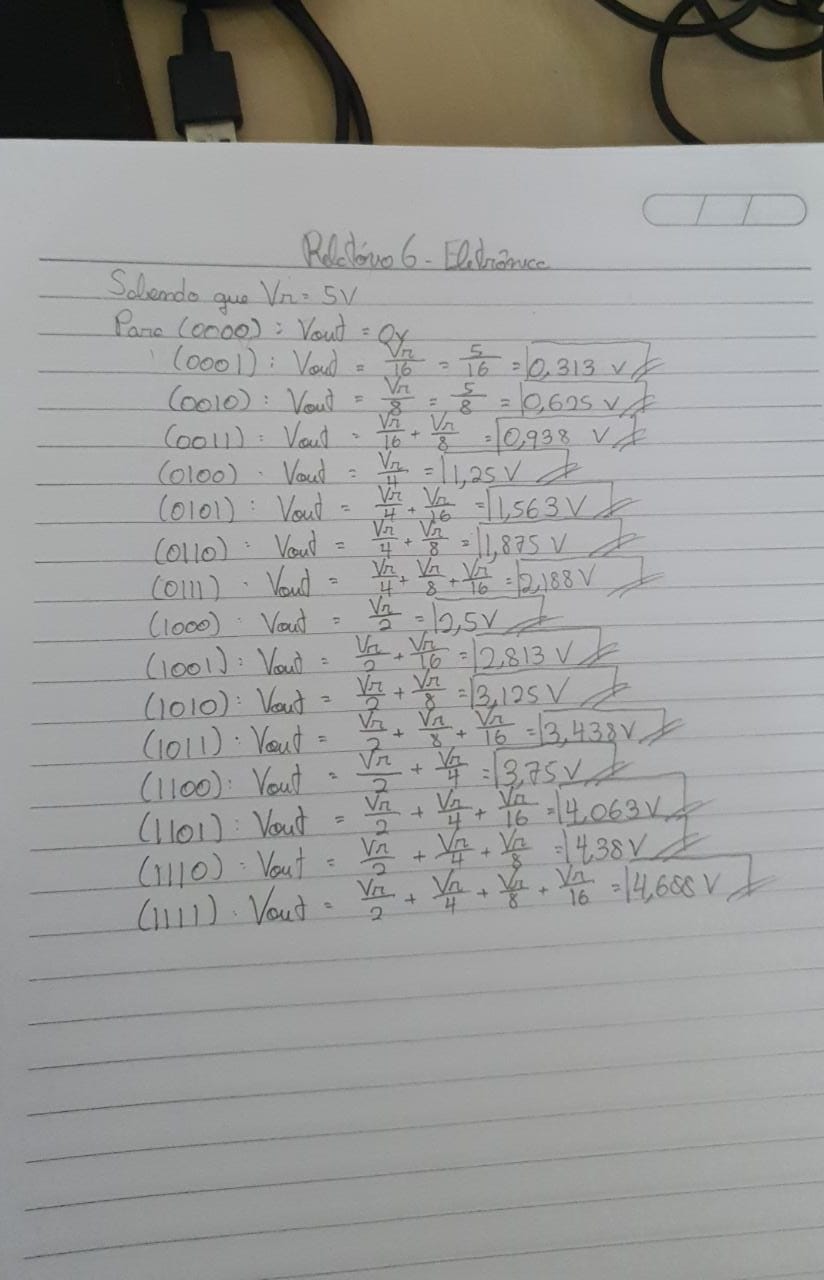 Relatório 6 - Eletrônica
Sabendo que Vr = 5V
Para (0000) : Vout = 0V
(0001) : Vout = Vr/16 = 5/16 = 0,313 V
(0010) : Vout = Vr/8 = 5/8 = 0,625 V
(0011) : Vout = Vr/16 + Vr/8 = 0,938 V
(0100) : Vout = Vr/4 = 1,25 V
(0101) : Vout = Vr/4 + Vr/16 = 1,563 V
(0110) : Vout = Vr/4 + Vr/8 = 1,875 V
(0111) : Vout = Vr/4 + Vr/8 + Vr/16 = 2,188 V
(1000) : Vout = Vr/2 = 2,5 V
(1001) : Vout = Vr/2 + Vr/16 = 2,813 V
(1010) : Vout = Vr/2 + Vr/8 = 3,125 V
(1011) : Vout = Vr/2 + Vr/8 + Vr/16 = 3,438 V
(1100) : Vout = Vr/2 + Vr/4 = 3,75 V
(1101) : Vout = Vr/2 + Vr/4 + Vr/16 = 4,063 V
(1110) : Vout = Vr/2 + Vr/4 + Vr/8 = 4,38 V
(1111) : Vout = Vr/2 + Vr/4 + Vr/8 + Vr/16 = 4,688 V